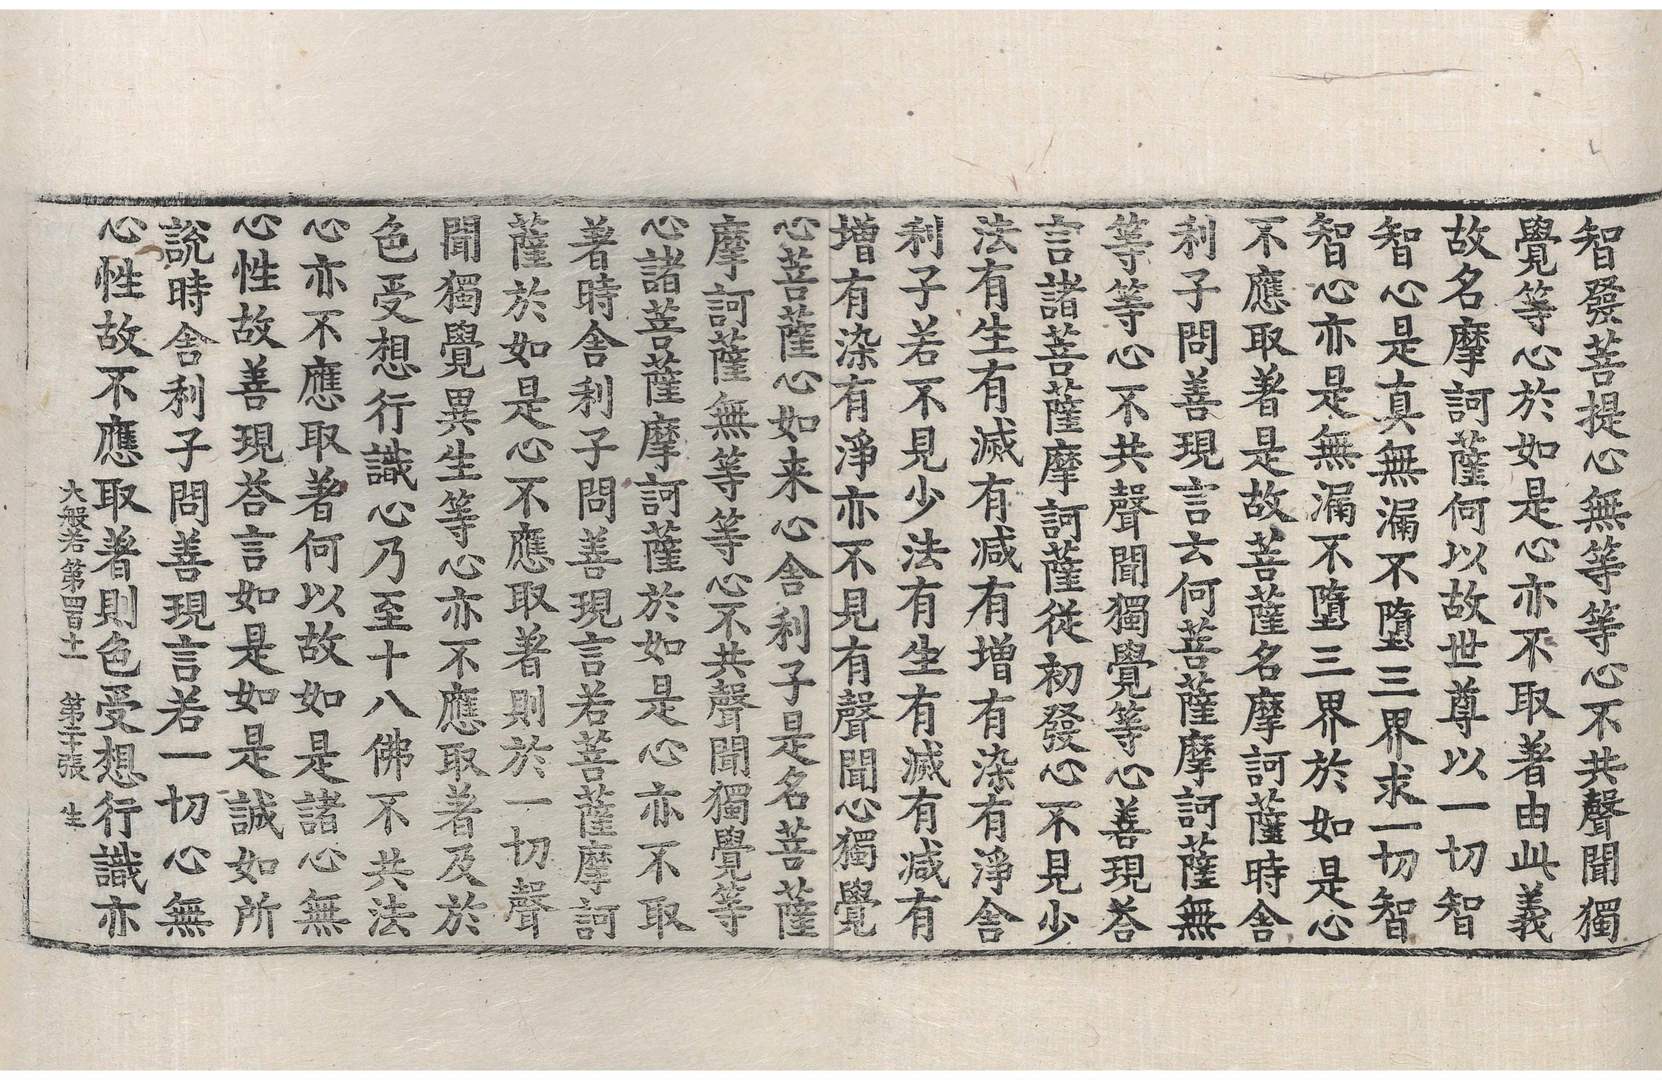 智發菩提心無等等心不共聲聞獨
覺等心於如是心亦不取著由此義
故名摩訶薩何以故世尊以一切智
智心是真無漏不墮三界求一切智
智心亦是無漏不墮三界於如是心
不應取著是故菩薩名摩訶薩時舍
利子問善現言云何菩薩摩訶薩無
等等心不共聲聞獨覺等心善現荅
言諸菩薩摩訶薩從初發心不見少
法有生有滅有减有增有染有淨舍
利子若不見少法有生有滅有减有
增有染有淨亦不見有聲聞心獨覺
心菩薩心如来心舍利子是名菩薩
摩訶薩無等等心不共聲聞獨覺等
心諸菩薩摩訶薩於如是心亦不取
著時舍利子問善現言若菩薩摩訶
薩於如是心不應取著則於一切聲
聞獨覺異生等心亦不應取著及於
色受想行識心乃至十八佛不共法
心亦不應取著何以故如是諸心無
心性故善現荅言如是如是誠如所
說時舍利子問善現言若一切心無
心性故不應取著則色受想行識亦
大般若第四百十一 第二十張 生